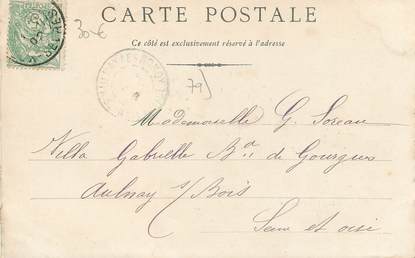 CARTE POSTALE
Ce côté est exclusivement réservé à l'adresse
30 €
79)
Mademoiselle G.
Villa Gabrielle Bd de Gourgues
Aulnay s/Bois
Seine et oise